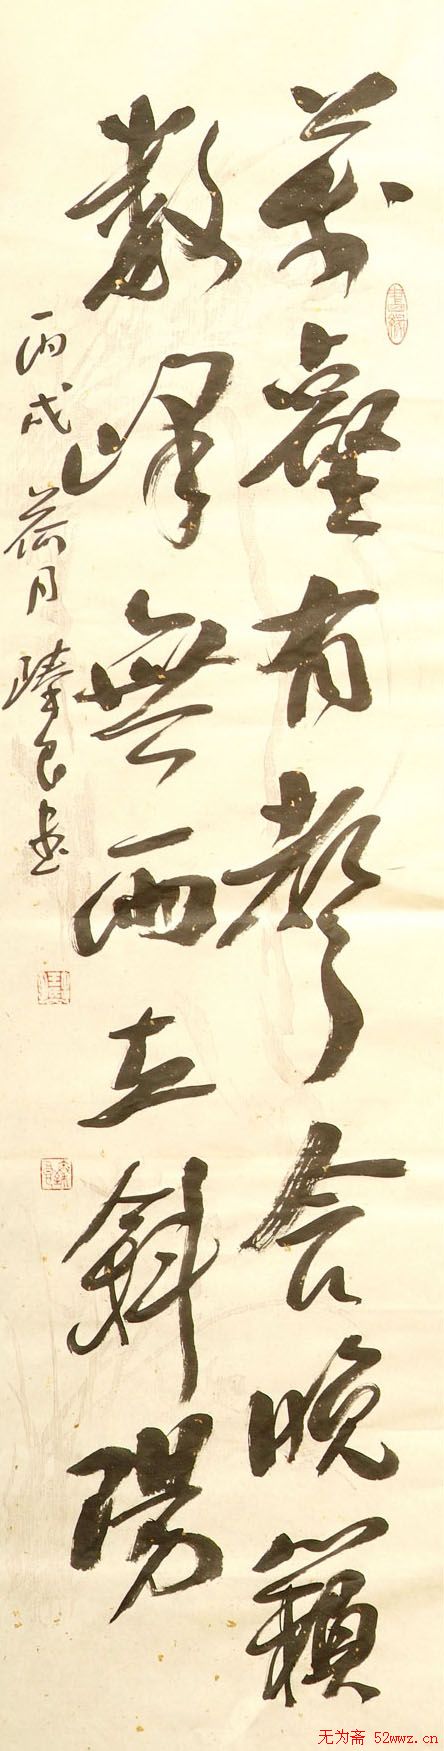 萬壑有聲含晚籟
數峰無雨立斜陽
丙戌荷月 書
无为斋 52wwz.cn